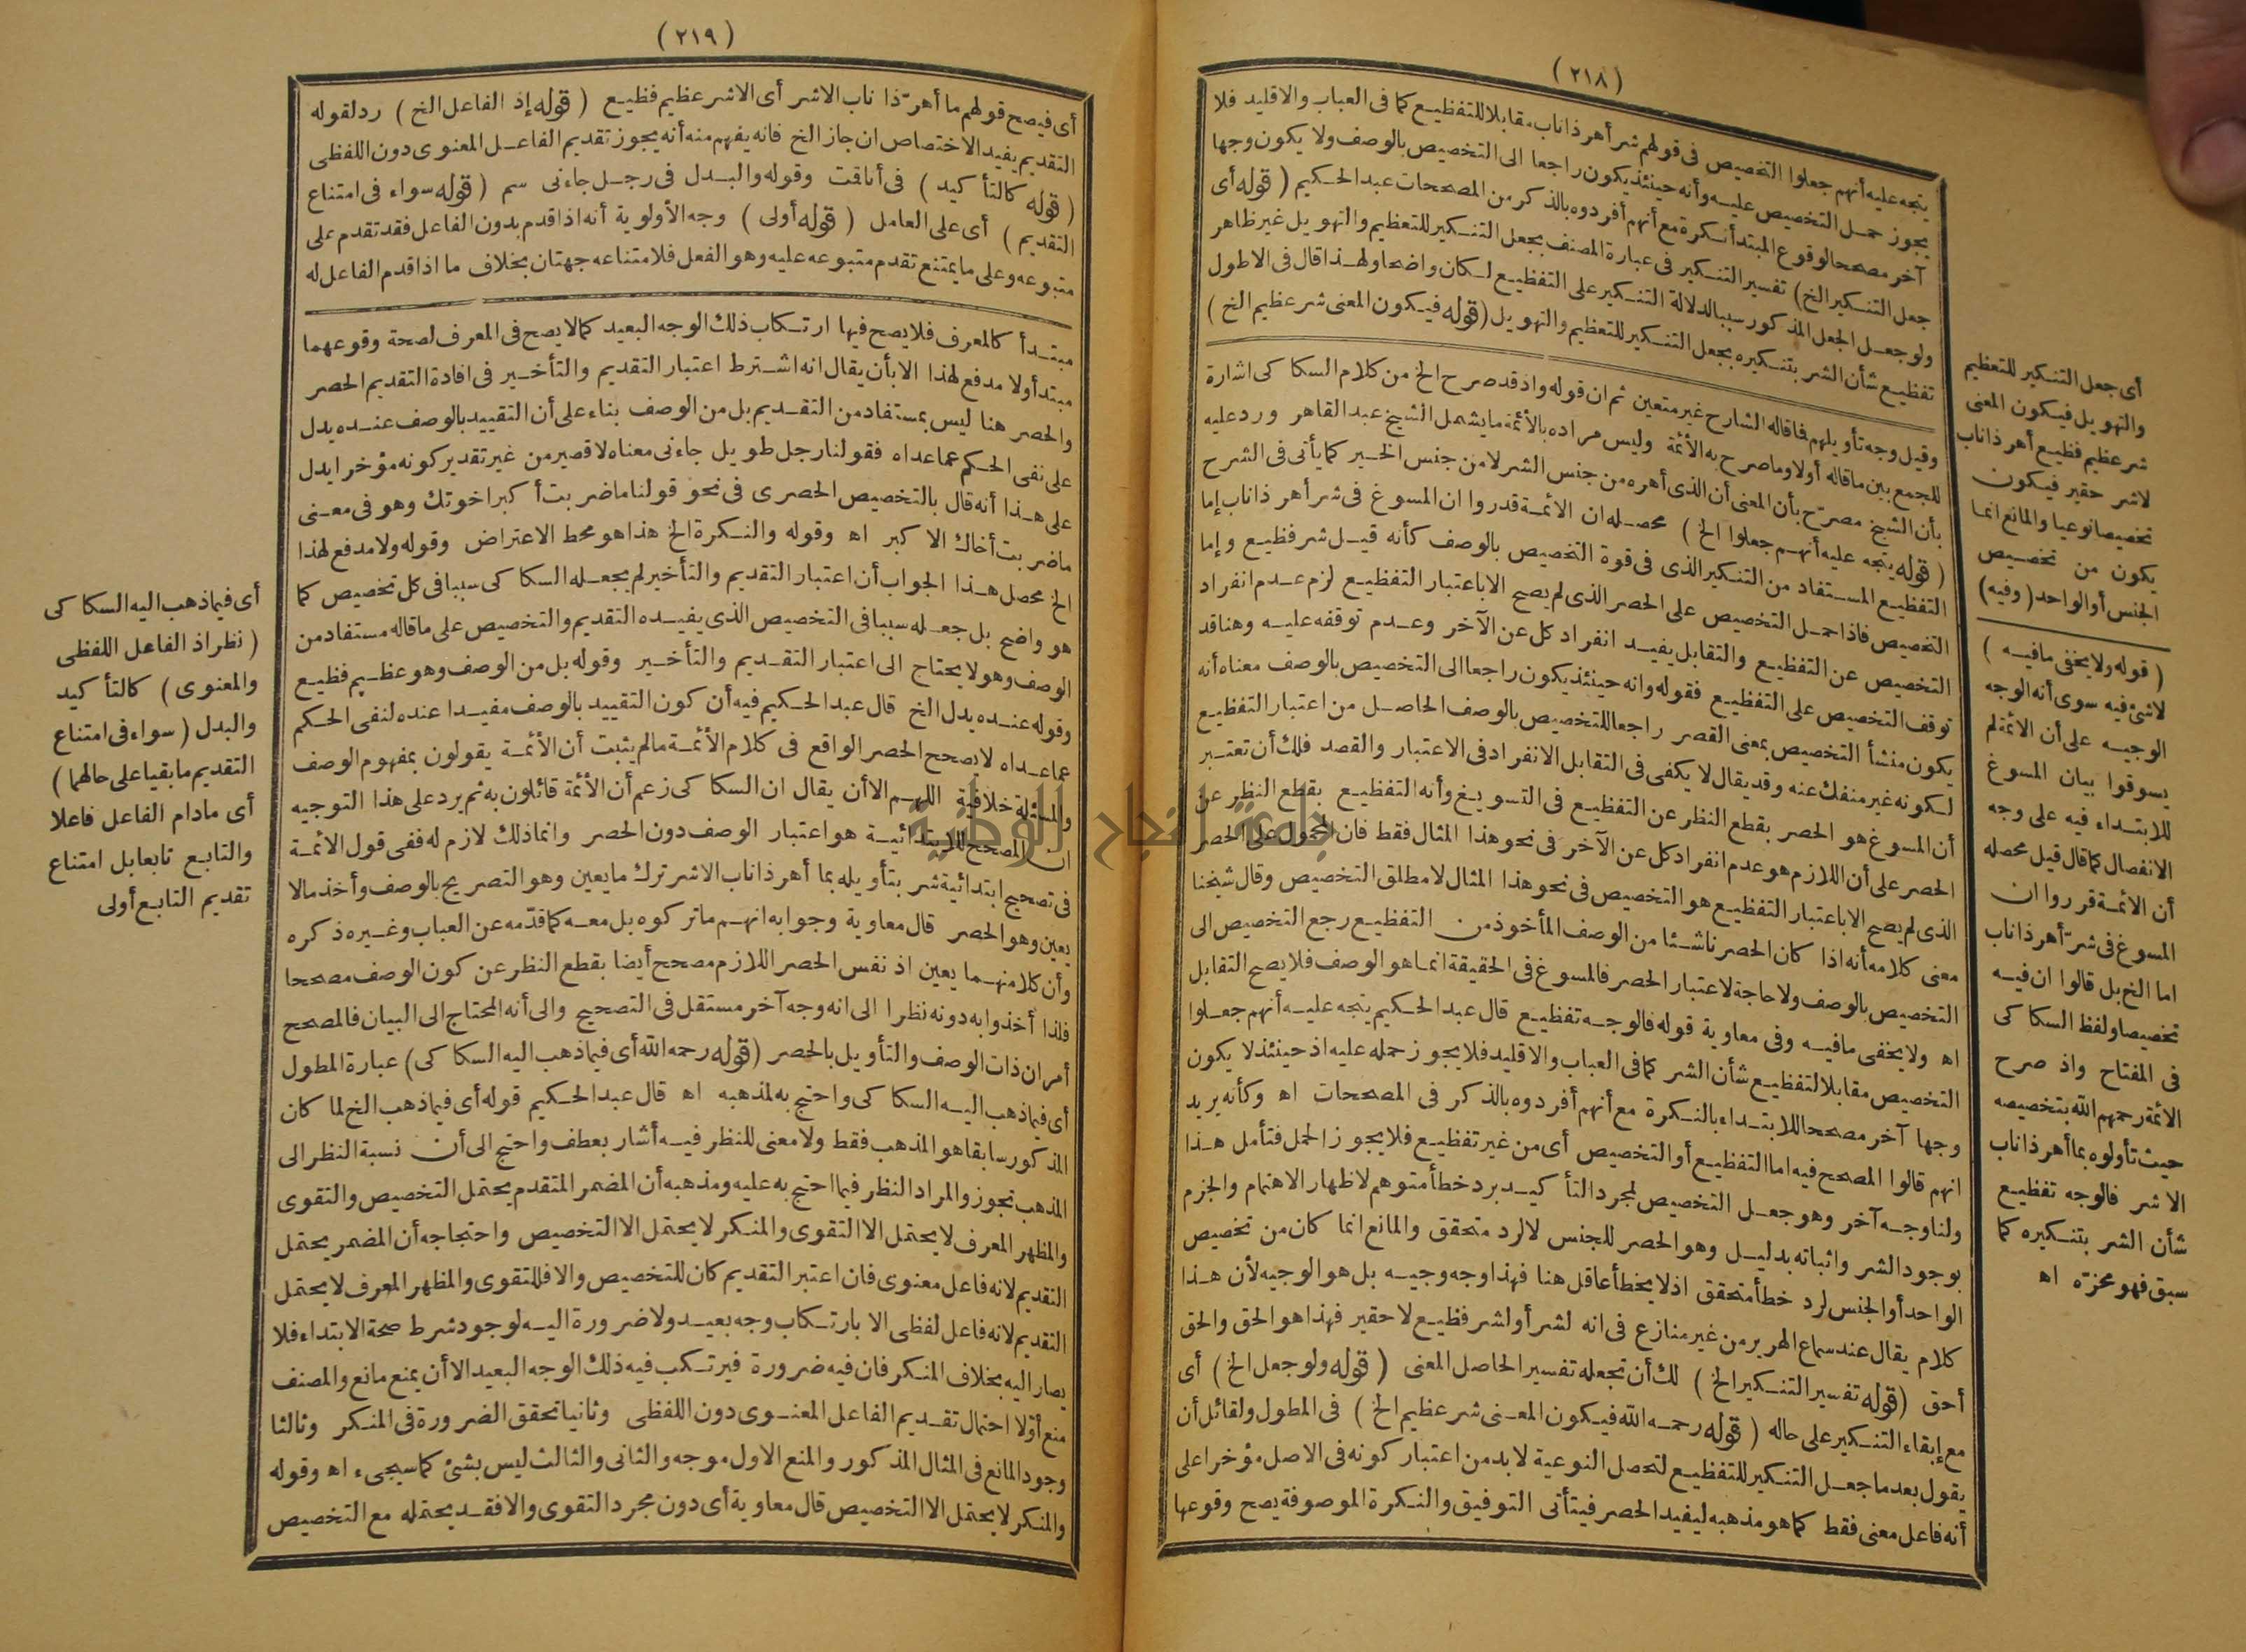 (٢١٨)
يتجه عليه أنهم جعلوا التخصيص فى قولهم شر أهر ذا ناب مقابلا للتفظيع كما فى العباب والاقليد فلا
يجوز حمل التخصيص عليه وأنه حينئذ يكون راجعا الى التخصيص بالوصف ولا يكون وجها
آخر مصححا لوقوع المبتدأ نكرة مع أنهم أفردوه بالذكر من المصححات عبد الحكيم (قوله أى
جعل التنكير الخ) تفسير التنكير فى عبارة المصنف بجعل التنكير للتعظيم والتهويل غير ظاهر
ولو جعل الجعل المذكور سببا لدلالة التنكير على التفظيع لكان واضحا ولهذا قال فى الاطول
تفظيع شأن الشر بتنكيره بجعل التنكير للتعظيم والتهويل (قوله فيكون المعنى شر عظيم الخ)
وقيل وجه تأويلهم فاقاله الشارح غير متعين ثم ان قوله واذ قد صرح الخ من كلام السكاكى اشارة
للجمع بين ماقاله أولا وماصرح به الأئمة وليس مراده بالأئمة مايشمل الشيخ عبد القاهر ورد عليه
بأن الشيخ مصرّح بأن المعنى أن الذى أهره من جنس الشر لا من جنس الخير كما يأتى فى الشرح
(قوله يتجه عليه أنهم جعلوا الخ) محصله ان الائمة قدروا ان المسوغ فى شر أهر ذا ناب إما
التفظيع المستفاد من التنكير الذى فى قوة التخصيص بالوصف كأنه قيل شر فظيع وإما
التخصيص فاذا حمل التخصيص على الحصر الذى لم يصح الا باعتبار التفظيع لزم عدم انفراد
التخصيص عن التفظيع والتقابل يفيد انفراد كل عن الآخر وعدم توقفه عليه وهنا قد
توقف التخصيص على التفظيع فقوله وانه حينئذ يكون راجعا الى التخصيص بالوصف معناه أنه
يكون منشأ التخصيص بمعنى القصر راجعا للتخصيص بالوصف الحاصل من اعتبار التفظيع
لكونه غير منفك عنه وقد يقال لا يكفى فى التقابل الانفراد فى الاعتبار والقصد فلك أن تعتبر
أن المسوغ هو الحصر بقطع النظر عن التفظيع فى التسويغ وأنه التفظيع بقطع النظر عن
الحصر على أن اللازم هو عدم انفراد كل عن الآخر فى نحو هذا المثال فقط فان المحمول على الحصر
الذى لم يصح الا باعتبار التفظيع هو التخصيص فى نحو هذا المثال لا مطلق التخصيص وقال شيخنا
معنى كلامه أنه اذا كان الحصر ناشئا من الوصف المأخوذ من التفظيع رجع التخصيص الى
التخصيص بالوصف ولا حاجة لاعتبار الحصر فالمسوغ فى الحقيقة انما هو الوصف فلا يصح التقابل
اه ولا يخفى مافيه وفى معاوية قوله فالوجه تفظيع قال عبد الحكيم يتجه عليه أنهم جعلوا
التخصيص مقابلا لتفظيع شأن الشر كما فى العباب والاقليد فلا يجوز حمله عليه اذ حينئذ لا يكون
وجها آخر مصححا للابتداء بالنكرة مع أنهم أفردوه بالذكر فى المصححات اه وكأنه يريد
انهم قالوا المصحح فيه اما التفظيع أو التخصيص أى من غير تفظيع فلا يجوز الحمل فتأمل هذا
ولنا وجه آخر وهو جعل التخصيص لمجرد التأكيد برد خطأ متوهم لاظهار الاهتمام والجزم
بوجود الشر واثباته بدليل وهو الحصر للجنس لا لرد متحقق والمانع انما كان من تخصيص
الواحد أو الجنس لرد خطأ متحقق اذ لا يخطأ عاقل هنا فهذا وجه وجيه بل هو الوجيه لأن هذا
كلام يقال عند سماع الهرير من غير منازع فى انه لشر أو لشر فظيع لا حقير فهذا هو الحق والحق
أحق (قوله تفسير التنكير الخ) لك أن تجعله تفسير الحاصل المعنى (قوله ولو جعل الخ) أى
مع إبقاء التنكير على حاله (قوله رحمه الله فيكون المعنى شر عظيم الخ) فى المطول ولقائل أن
يقول بعد ما جعل التنكير للتفظيع لتحصل النوعية لا بد من اعتبار كونه فى الاصل مؤخرا على
أنه فاعل معنى فقط كما هو مذهبه ليفيد الحصر فيتأتى التوفيق والنكرة الموصوفة يصح وقوعها
أى جعل التنكير للتعظيم
والتهويل فيكون المعنى
شر عظيم فظيع أهر ذا ناب
لا شر حقير فيكون
تخصيصا نوعيا والمانع انما
يكون من تخصيص
الجنس أو الواحد (وفيه)
(قوله ولا يخفى مافيه)
لا شئ فيه سوى أنه الوجه
الوجيه على أن الائمة لم
يسوقوا بيان المسوغ
للابتداء فيه على وجه
الانفصال كما قال قيل محصله
أن الائمة قرروا ان
المسوغ فى شرّ أهر ذا ناب
اما الخ بل قالوا ان فيه
تخصيصا ولفظ السكاكى
فى المفتاح واذ صرح
الائمة رحمهم الله بتخصيصه
حيث تأولوه بما أهر ذا ناب
الا شر فالوجه تفظيع
شأن الشر بتنكيره كما
سبق فهو محزّه اه
(٢١٩)
أى فيصح قولهم ما أهرّ ذا ناب الا شر أى الا شر عظيم فظيع (قوله إذ الفاعل الخ) رد لقوله
التقديم يفيد الاختصاص ان جاز الخ فانه يفهم منه أنه يجوز تقديم الفاعل المعنوى دون اللفظى
(قوله كالتأكيد) فى أنا قت وقوله والبدل فى رجل جاءنى سم (قوله سواء فى امتناع
التقديم) أى على العامل (قوله أولى) وجه الأولوية أنه اذا قدم بدون الفاعل فقد تقدم على
متبوعه وعلى ما يمتنع تقدم متبوعه عليه وهو الفعل فلامتناعه جهتان بخلاف ما اذا قدم الفاعل له
مبتدأ كالمعرف فلا يصح فيها ارتكاب ذلك الوجه البعيد كما لا يصح فى المعرف لصحة وقوعهما
مبتدأ ولا مدفع لهذا الا بأن يقال انه اشترط اعتبار التقديم والتأخير فى افادة التقديم الحصر
والحصر هنا ليس بمستفاد من التقديم بل من الوصف بناء على أن التقييد بالوصف عنده يدل
على نفى الحكم عما عداه فقولنا رجل طويل جاءنى معناه لا قصير من غير تقدير كونه مؤخرا يدل
على هذا أنه قال بالتخصيص الحصرى فى نحو قولنا ماضربت أكبر اخوتك وهو فى معنى
ماضربت أخاك الاكبر اه وقوله والنكرة الخ هذا هو محط الاعتراض وقوله ولا مدفع لهذا
الخ محصل هذا الجواب أن اعتبار التقديم والتأخير لم يجعله السكاكى سببا فى كل تخصيص كما
هو واضح بل جعله سببا فى التخصيص الذى يفيده التقديم والتخصيص على ماقاله مستفاد من
الوصف وهو لا يحتاج الى اعتبار التقديم والتأخير وقوله بل من الوصف وهو عظيم فظيع
وقوله عنده يدل الخ قال عبد الحكيم فيه أن كون التقييد بالوصف مفيدا عنده لنفى الحكم
عما عداه لا يصحح الحصر الواقع فى كلام الأئمة مالم يثبت أن الأئمة يقولون بمفهوم الوصف
والمسئلة خلافية اللهم الا أن يقال ان السكاكى زعم أن الأئمة قائلون به ثم يرد على هذا التوجيه
ان المصحح للابتدائية هو اعتبار الوصف دون الحصر وانما ذلك لازم له ففى قول الائمة
فى تصحيح ابتدائية شر بتأويله بما أهر ذا ناب الا شر ترك مايعين وهو التصريح بالوصف وأخذ مالا
يعين وهو الحصر قال معاوية وجوابه انهم ماتركوه بل معه كما قدّمه عن العباب وغيره ذكره
وأن كلا منهما يعين اذ نفس الحصر اللازم مصحح أيضا بقطع النظر عن كون الوصف مصححا
فلذا أخذوا به دونه نظرا الى انه وجه آخر مستقل فى التصحيح والى أنه المحتاج الى البيان فالمصحح
أمران ذات الوصف والتأويل بالحصر (قوله رحمه الله أى فيما ذهب اليه السكاكى) عبارة المطول
أى فيما ذهب اليه السكاكى واحتج به لمذهبه اه قال عبد الحكيم قوله أى فيما ذهب الخ لما كان
المذكور سابقا هو المذهب فقط ولا معنى للنظر فيه أشار بعطف واحتج الى أن نسبة النظر الى
المذهب تجوز والمراد النظر فيما احتج به عليه ومذهبه أن المضمر المتقدم يحتمل التخصيص والتقوى
والمظهر المعرف لا يحتمل الا التقوى والمنكر لا يحتمل الا التخصيص واحتجاجه أن المضمر يحتمل
التقديم لانه فاعل معنوى فان اعتبر التقديم كان للتخصيص والا فللتقوى والمظهر المعرف لا يحتمل
التقديم لانه فاعل لفظى الا بارتكاب وجه بعيد ولا ضرورة اليه لوجود شرط صحة الابتداء فلا
يصار اليه بخلاف المنكر فان فيه ضرورة فيرتكب فيه ذلك الوجه البعيد الا أن يمنع مانع والمصنف
منع أوّلا احتمال تقديم الفاعل المعنوى دون اللفظى وثانيا تحقق الضرورة فى المنكر وثالثا
وجود المانع فى المثال المذكور والمنع الاول موجه والثانى والثالث ليس بشئ كما سيجىء اه وقوله
والمنكر لا يحتمل الا التخصيص قال معاوية أى دون مجرد التقوى والا فقد يحتمله مع التخصيص
أى فيما ذهب اليه السكاكى
(نظر اذ الفاعل اللفظى
والمعنوى) كالتأكيد
والبدل (سواء فى امتناع
التقديم ما بقيا على حالهما)
أى مادام الفاعل فاعلا
والتابع تابعا بل امتناع
تقديم التابع أولى
جامعة النجاح الوطنية